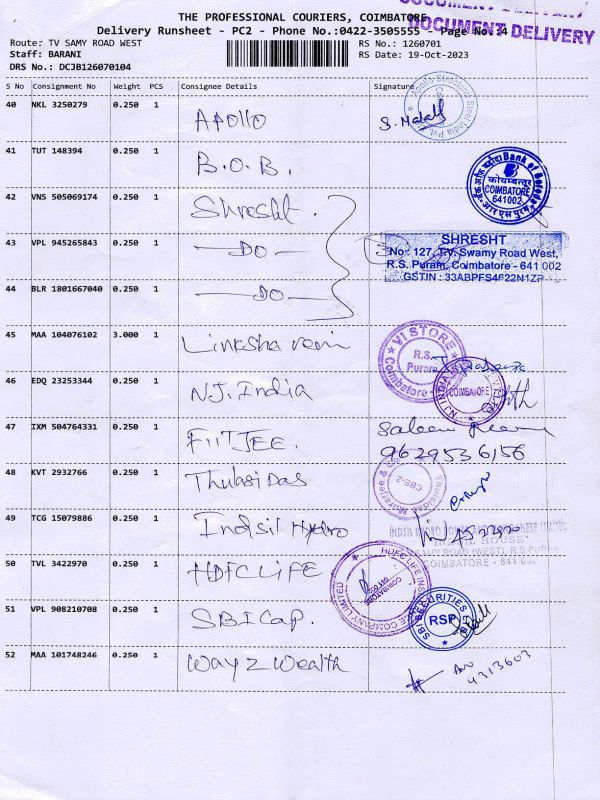 THE PROFESSIONAL COURIERS, COIMBATORE
DOCUMENT DELIVERY
Delivery Runsheet - PC2 - Phone No.:0422-3505555 Page No.:4
DOCUMENT DELIVERY
Route: TV SAMY ROAD WEST RS No.: 1260701
Staff: BARANI RS Date: 19-Oct-2023
DRS No.: DCJB126070104
S No Consignment No Weight PCS Consignee Details Signature
40 NKL 3250279 0.250 1 Apollo
Apollo Structural Steel India Pvt.
41 TUT 148394 0.250 1 B.O.B.
Bank of Baroda
कोयम्बत्तूर
COIMBATORE
641002
42 VNS 505069174 0.250 1 Shresht.
43 VPL 945265843 0.250 1 —DO—
SHRESHT
No: 127, T.V. Swamy Road West,
R.S. Puram, Coimbatore - 641 002
GSTIN : 33ABPFS4622N1ZP
44 BLR 1801667040 0.250 1 —DO—
45 MAA 104076102 3.000 1
VI STORE
R.S.
Puram
Coimbatore
46 EDQ 23253344 0.250 1 N.J. India
COIMBATORE
47 IXM 504764331 0.250 1 FIITJEE.
9629536156
48 KVT 2932766 0.250 1 Thulasi Das
CBE-2
49 TCG 15079886 0.250 1 Indsil Hydro
50 TVL 3422970 0.250 1 HDFC LIFE
HDFC LIFE INSURANCE COMPANY LIMITED
COIMBATORE
51 VPL 908210708 0.250 1 SBI Cap.
SBI SECURITIES
RSP
52 MAA 101748246 0.250 1 Way 2 Wealth
4313603